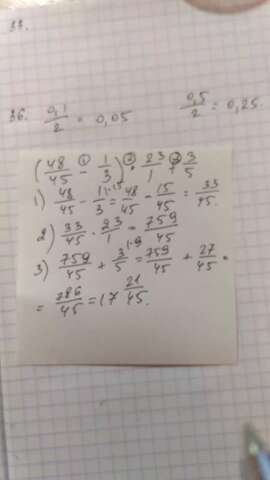 33.
36. 0,1/2 = 0,05 0,5/2 = 0,25
(48/45 - 1/3) · 23/1 + 3/5
1) 48/45 - 1/3 = 48/45 - 15/45 = 33/45.
2) 33/45 · 23/1 = 759/45
3) 759/45 + 3/5 = 759/45 + 27/45 =
= 786/45 = 17 21/45.